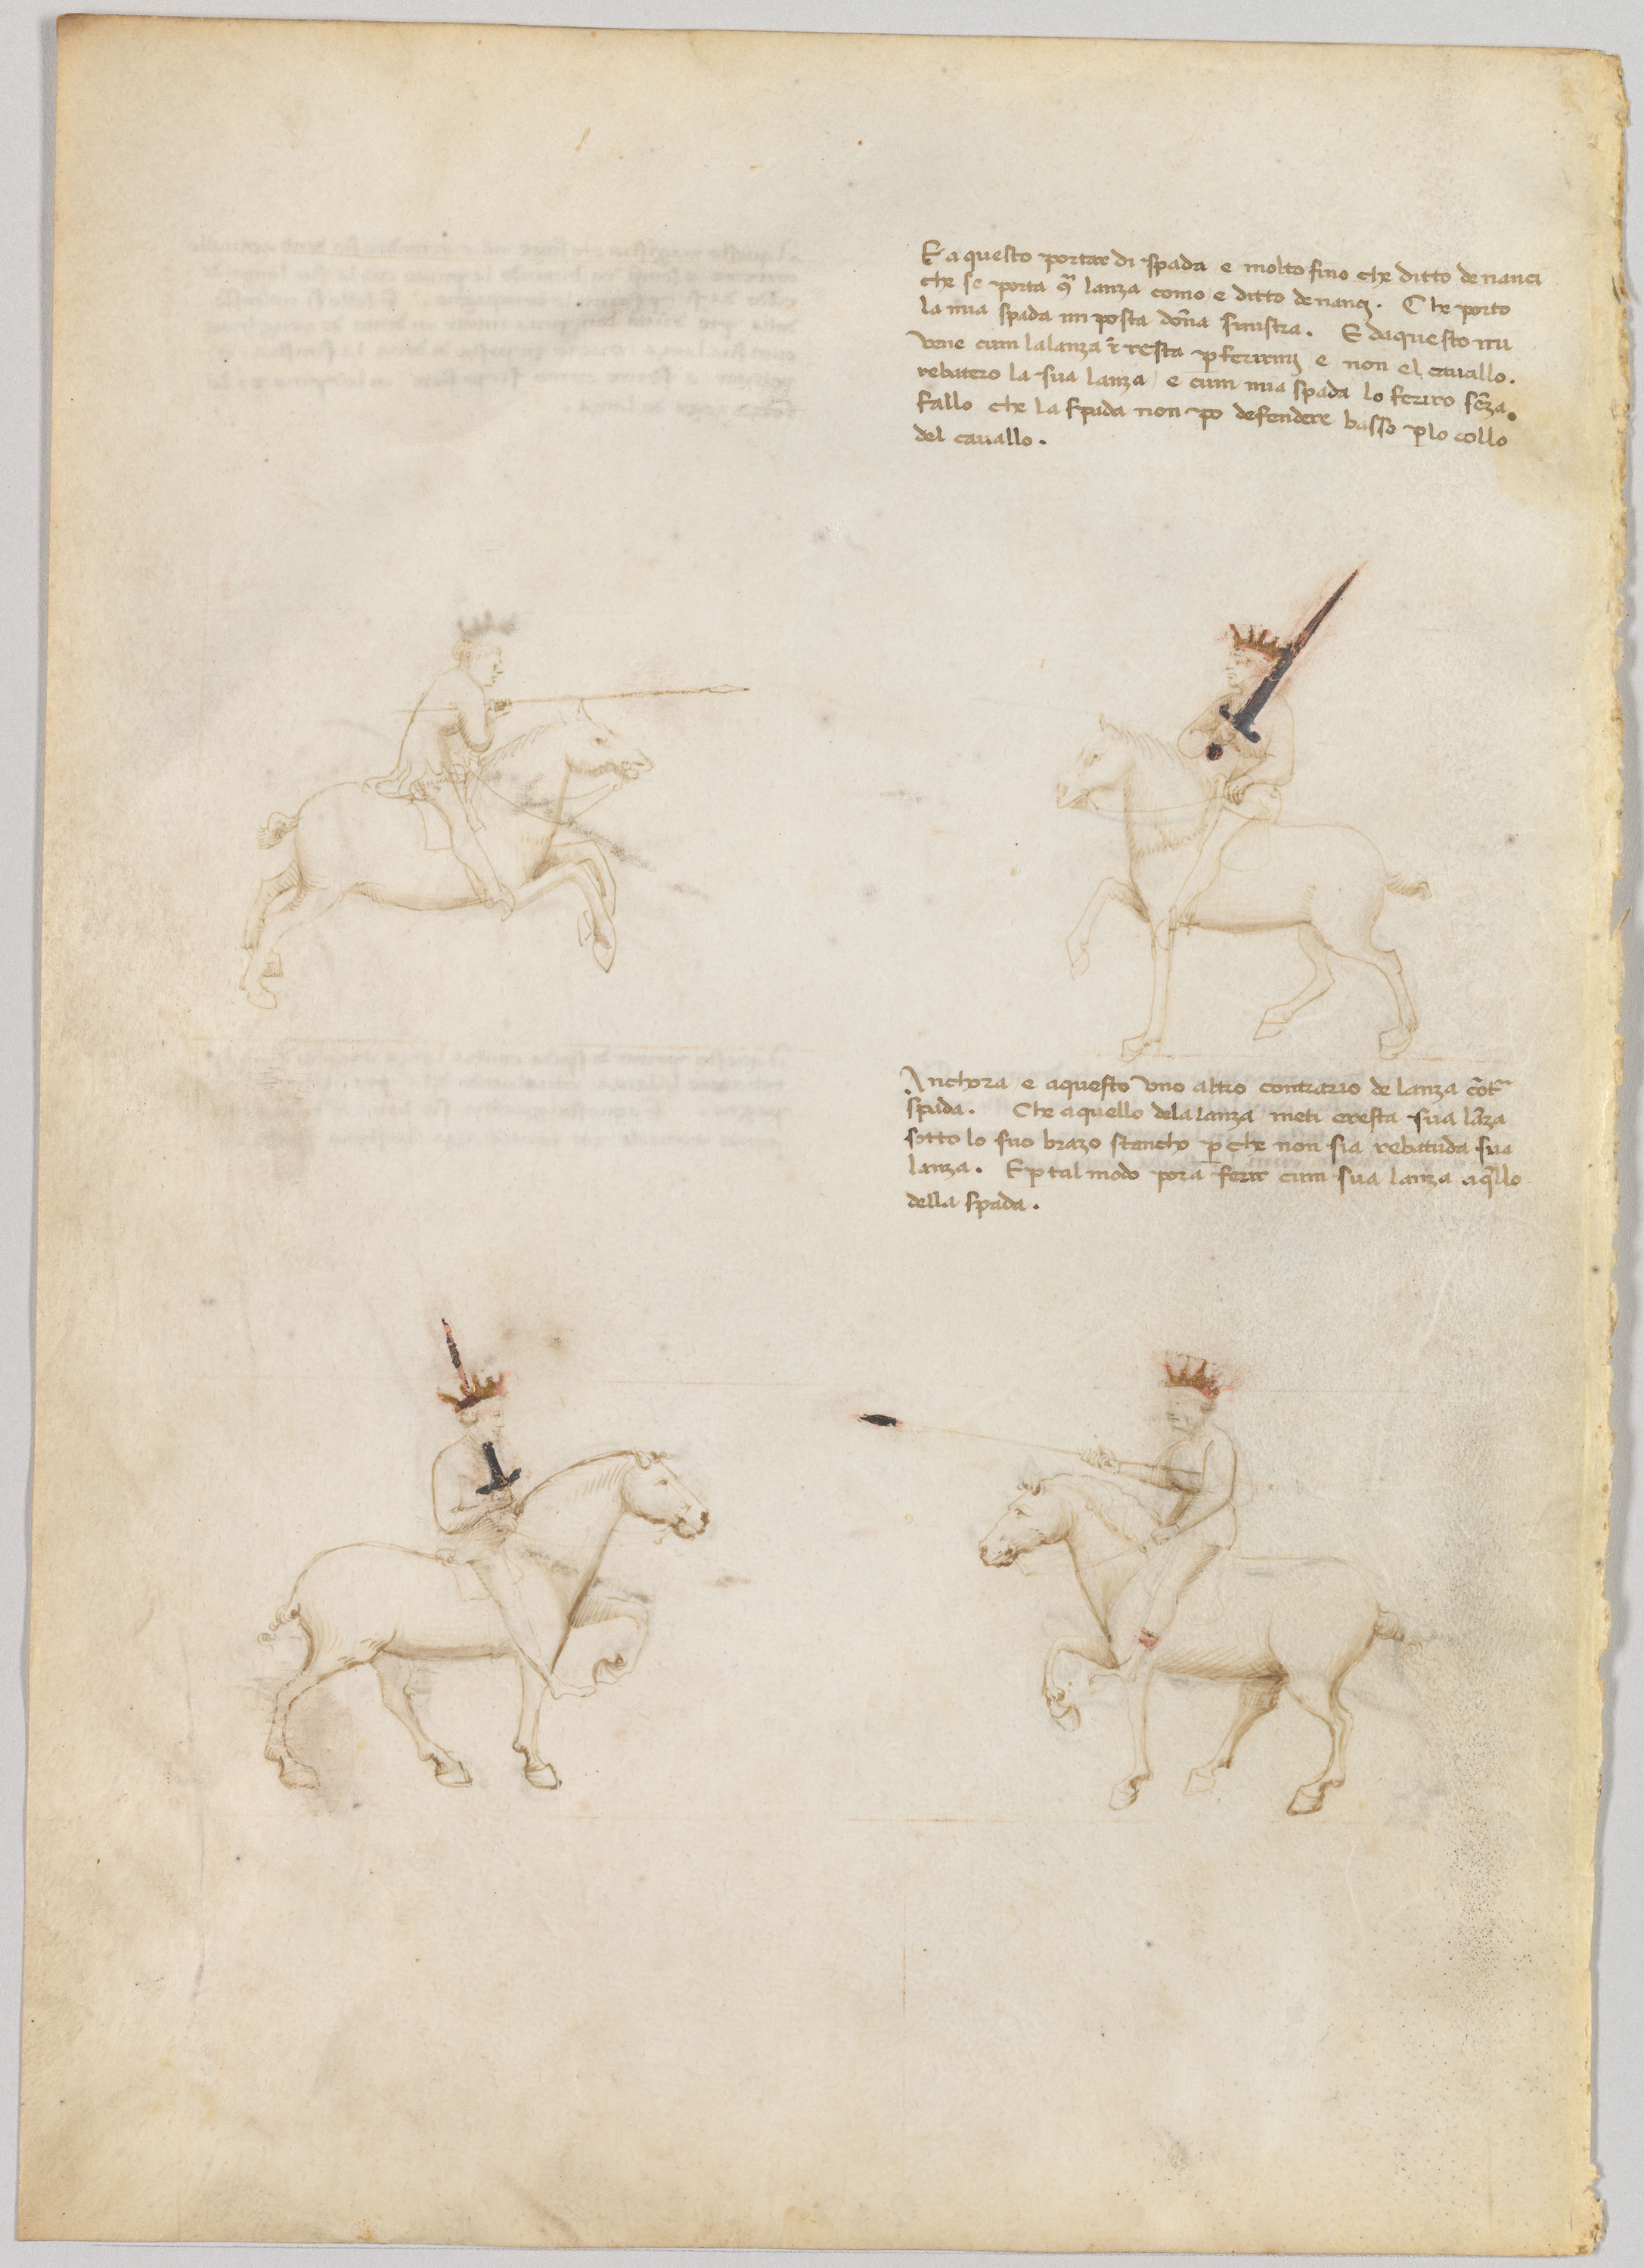 E aquesto portar di spada e molto fino che ditto denanci
che se porta q̃ lanza como e ditto denanci. Che porto
la mia spada im posta dõna sinistra. E daquesto mi
vene cum la lanza ĩ resta p ferirmi e non el cavallo.
rebatero la sua lanza / e cum mia spada lo feriro sẽza
fallo che la spada non po defendere basso p lo collo
del cavallo.
Anchora e aquesto vno altro contrario de lanza cõt^a
spada. Che aquello dela lanza meti eresta sua lãza
sotto lo suo brazo stancho p che non sia rebatuda sua
lanza. E p tal modo pora ferir cum sua lanza aq̃llo
della spada.